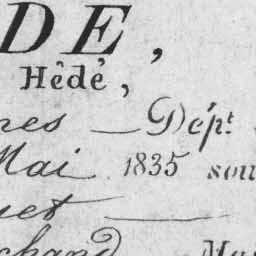 DE,
Hédé,
nes — Dépt
Mai 1835 sou
uet —
chand Ma